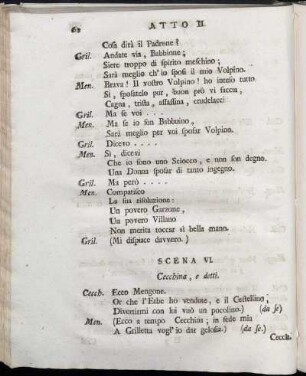 62 ATTO II.
Cosa dirà il Padrone?
Gril. Andate via, Babbione;
Siete troppo di spirito meschino;
Sarà meglio ch'io sposi il mio Volpino.
Men. Brava! Il vostro Volpino! ho inteso tutto.
Sì, sposatelo pur, buon prò vi faccia,
Cagna, trista, assassina, crudelaccia
Gril. Ma se voi . . . .
Men. Ma se io son Babbuino,
Sarà meglio per voi sposar Volpino.
Gril. Dicevo . . . .
Men. Sì, dicevi
Che io sono uno Sciocco, e non son degno.
Una Donna sposar di tanto ingegno.
Gril. Ma però . . . .
Men. Compatisco
La tua risoluzione:
Un povero Garzone,
Un povero Villano
Non merita toccar sì bella mano.
Gril. (Mi dispiace davvero.)
SCENA VI.
Cecchina, e detti.
Cecch. Ecco Mengone.
Or che l'Erbe ho vendute, e il Cestellino;
Divertirmi con lui vuò un pocolino.) (da se)
Men. (Ecco a tempo Cecchina; in fede mia
A Grilletta vogl'io dar gelosia.) (da se.)
Cecch.